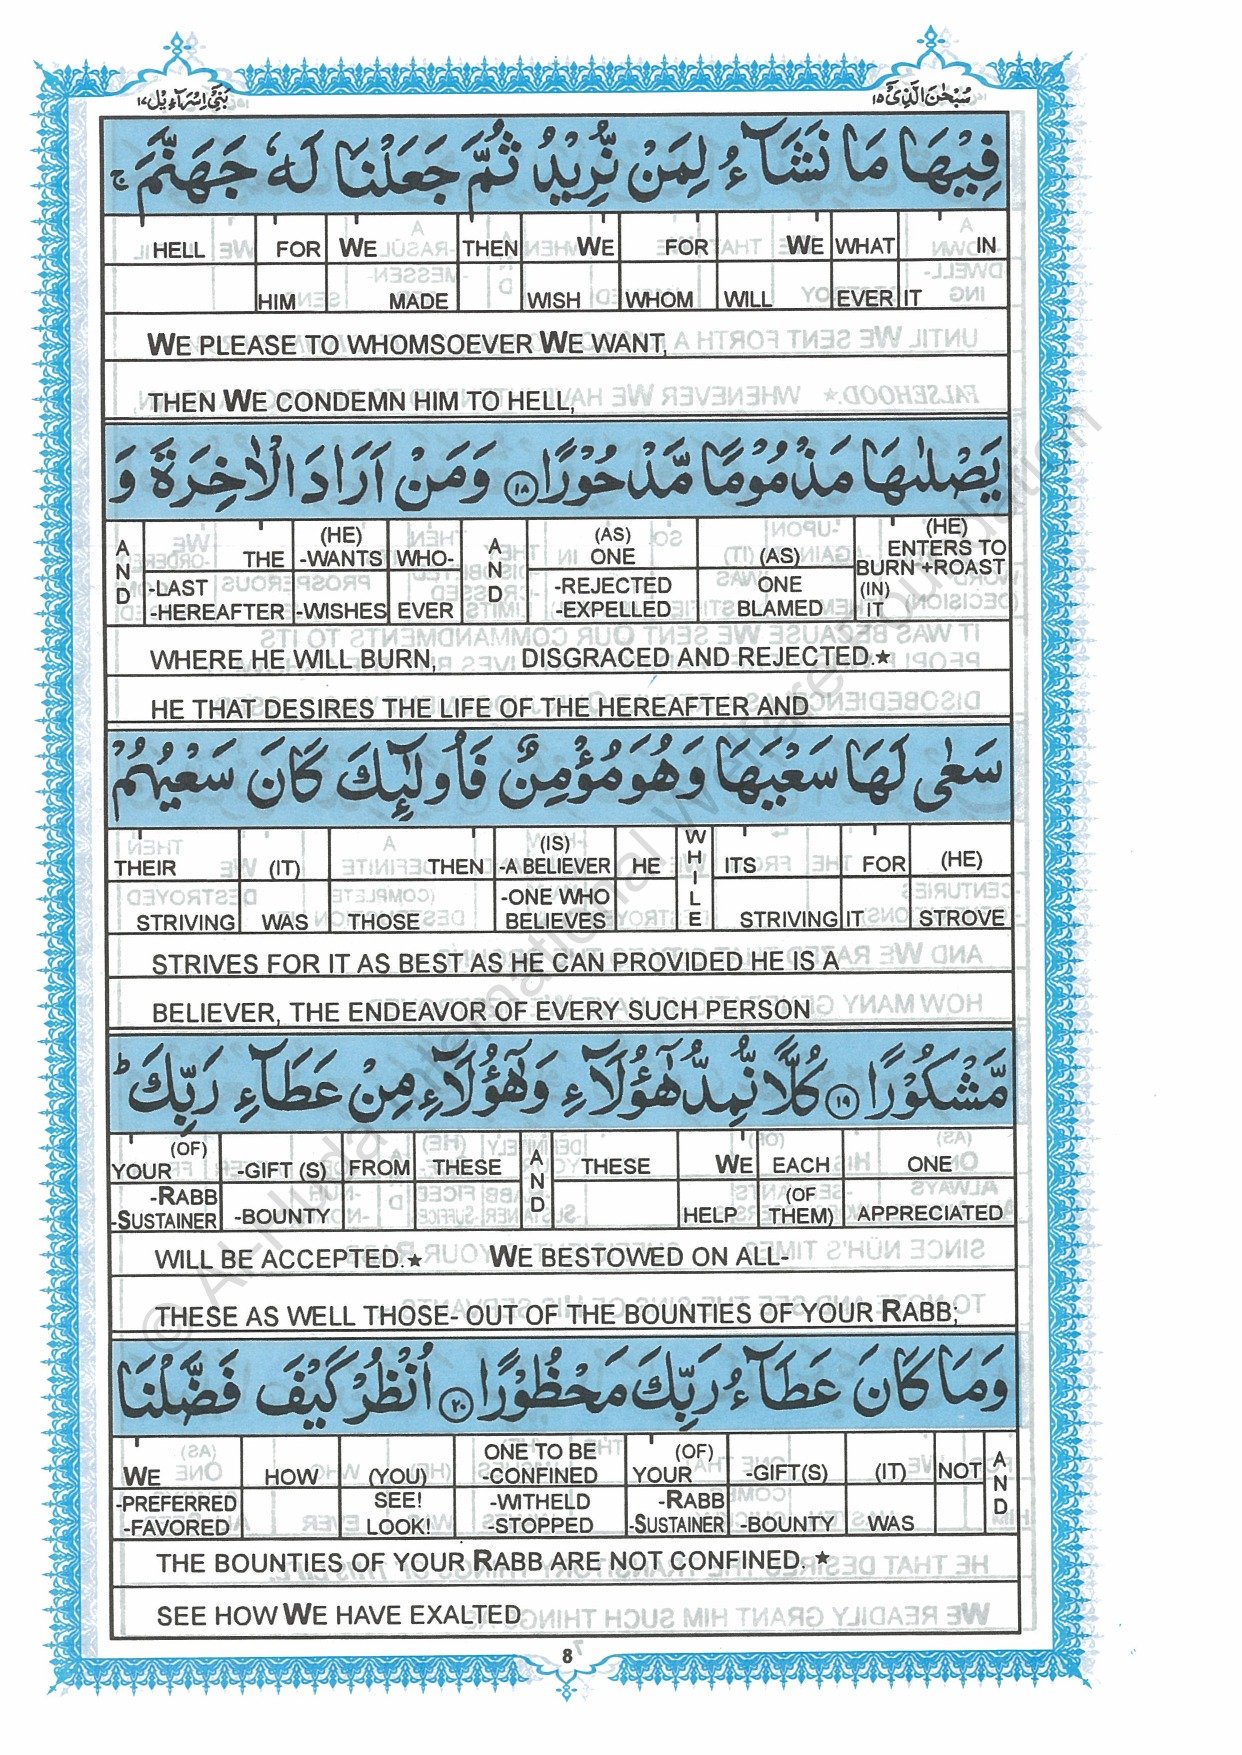 بَنِیْۤ اِسْرَآءِیْل ۱۷
سُبْحٰنَ الَّذِیْۤ ۱۵
فِیْهَا مَا نَشَآءُ لِمَنْ نُّرِیْدُ ثُمَّ جَعَلْنَا لَهٗ جَهَنَّمَ ۚ
HELL FOR WE THEN WE FOR WE WHAT IN
HIM MADE WISH WHOM WILL EVER IT
WE PLEASE TO WHOMSOEVER WE WANT,
THEN WE CONDEMN HIM TO HELL,
یَصْلٰىهَا مَذْمُوْمًا مَّدْحُوْرًا ۱۸ وَمَنْ اَرَادَ الْاٰخِرَةَ وَ
AND THE (HE) -WANTS WHO- AND (AS) ONE (AS) (HE) ENTERS TO BURN +ROAST
-LAST -HEREAFTER -WISHES EVER -REJECTED -EXPELLED ONE BLAMED (IN) IT
WHERE HE WILL BURN, DISGRACED AND REJECTED.★
HE THAT DESIRES THE LIFE OF THE HEREAFTER AND
سَعٰی لَهَا سَعْیَهَا وَهُوَ مُؤْمِنٌ فَاُولٰٓئِكَ كَانَ سَعْیُهُمْ
THEIR (IT) THEN (IS) -A BELIEVER HE WHILE ITS FOR (HE)
STRIVING WAS THOSE -ONE WHO BELIEVES STRIVING IT STROVE
STRIVES FOR IT AS BEST AS HE CAN PROVIDED HE IS A
BELIEVER, THE ENDEAVOR OF EVERY SUCH PERSON
مَّشْكُوْرًا ۱۹ كُلًّا نُّمِدُّ هٰۤؤُلَآءِ وَهٰۤؤُلَآءِ مِنْ عَطَآءِ رَبِّكَ ؕ
(OF) YOUR -GIFT (S) FROM THESE AND THESE WE EACH ONE
-RABB -SUSTAINER -BOUNTY HELP (OF THEM) APPRECIATED
WILL BE ACCEPTED.★ WE BESTOWED ON ALL-
THESE AS WELL THOSE- OUT OF THE BOUNTIES OF YOUR RABB;
وَمَا كَانَ عَطَآءُ رَبِّكَ مَحْظُوْرًا ۲۰ اُنْظُرْ كَیْفَ فَضَّلْنَا
WE HOW (YOU) ONE TO BE -CONFINED (OF) YOUR -GIFT(S) (IT) NOT AND
-PREFERRED -FAVORED SEE! LOOK! -WITHELD -STOPPED -RABB -SUSTAINER -BOUNTY WAS
THE BOUNTIES OF YOUR RABB ARE NOT CONFINED. ★
SEE HOW WE HAVE EXALTED
8
© Al-Huda International Welfare Foundation